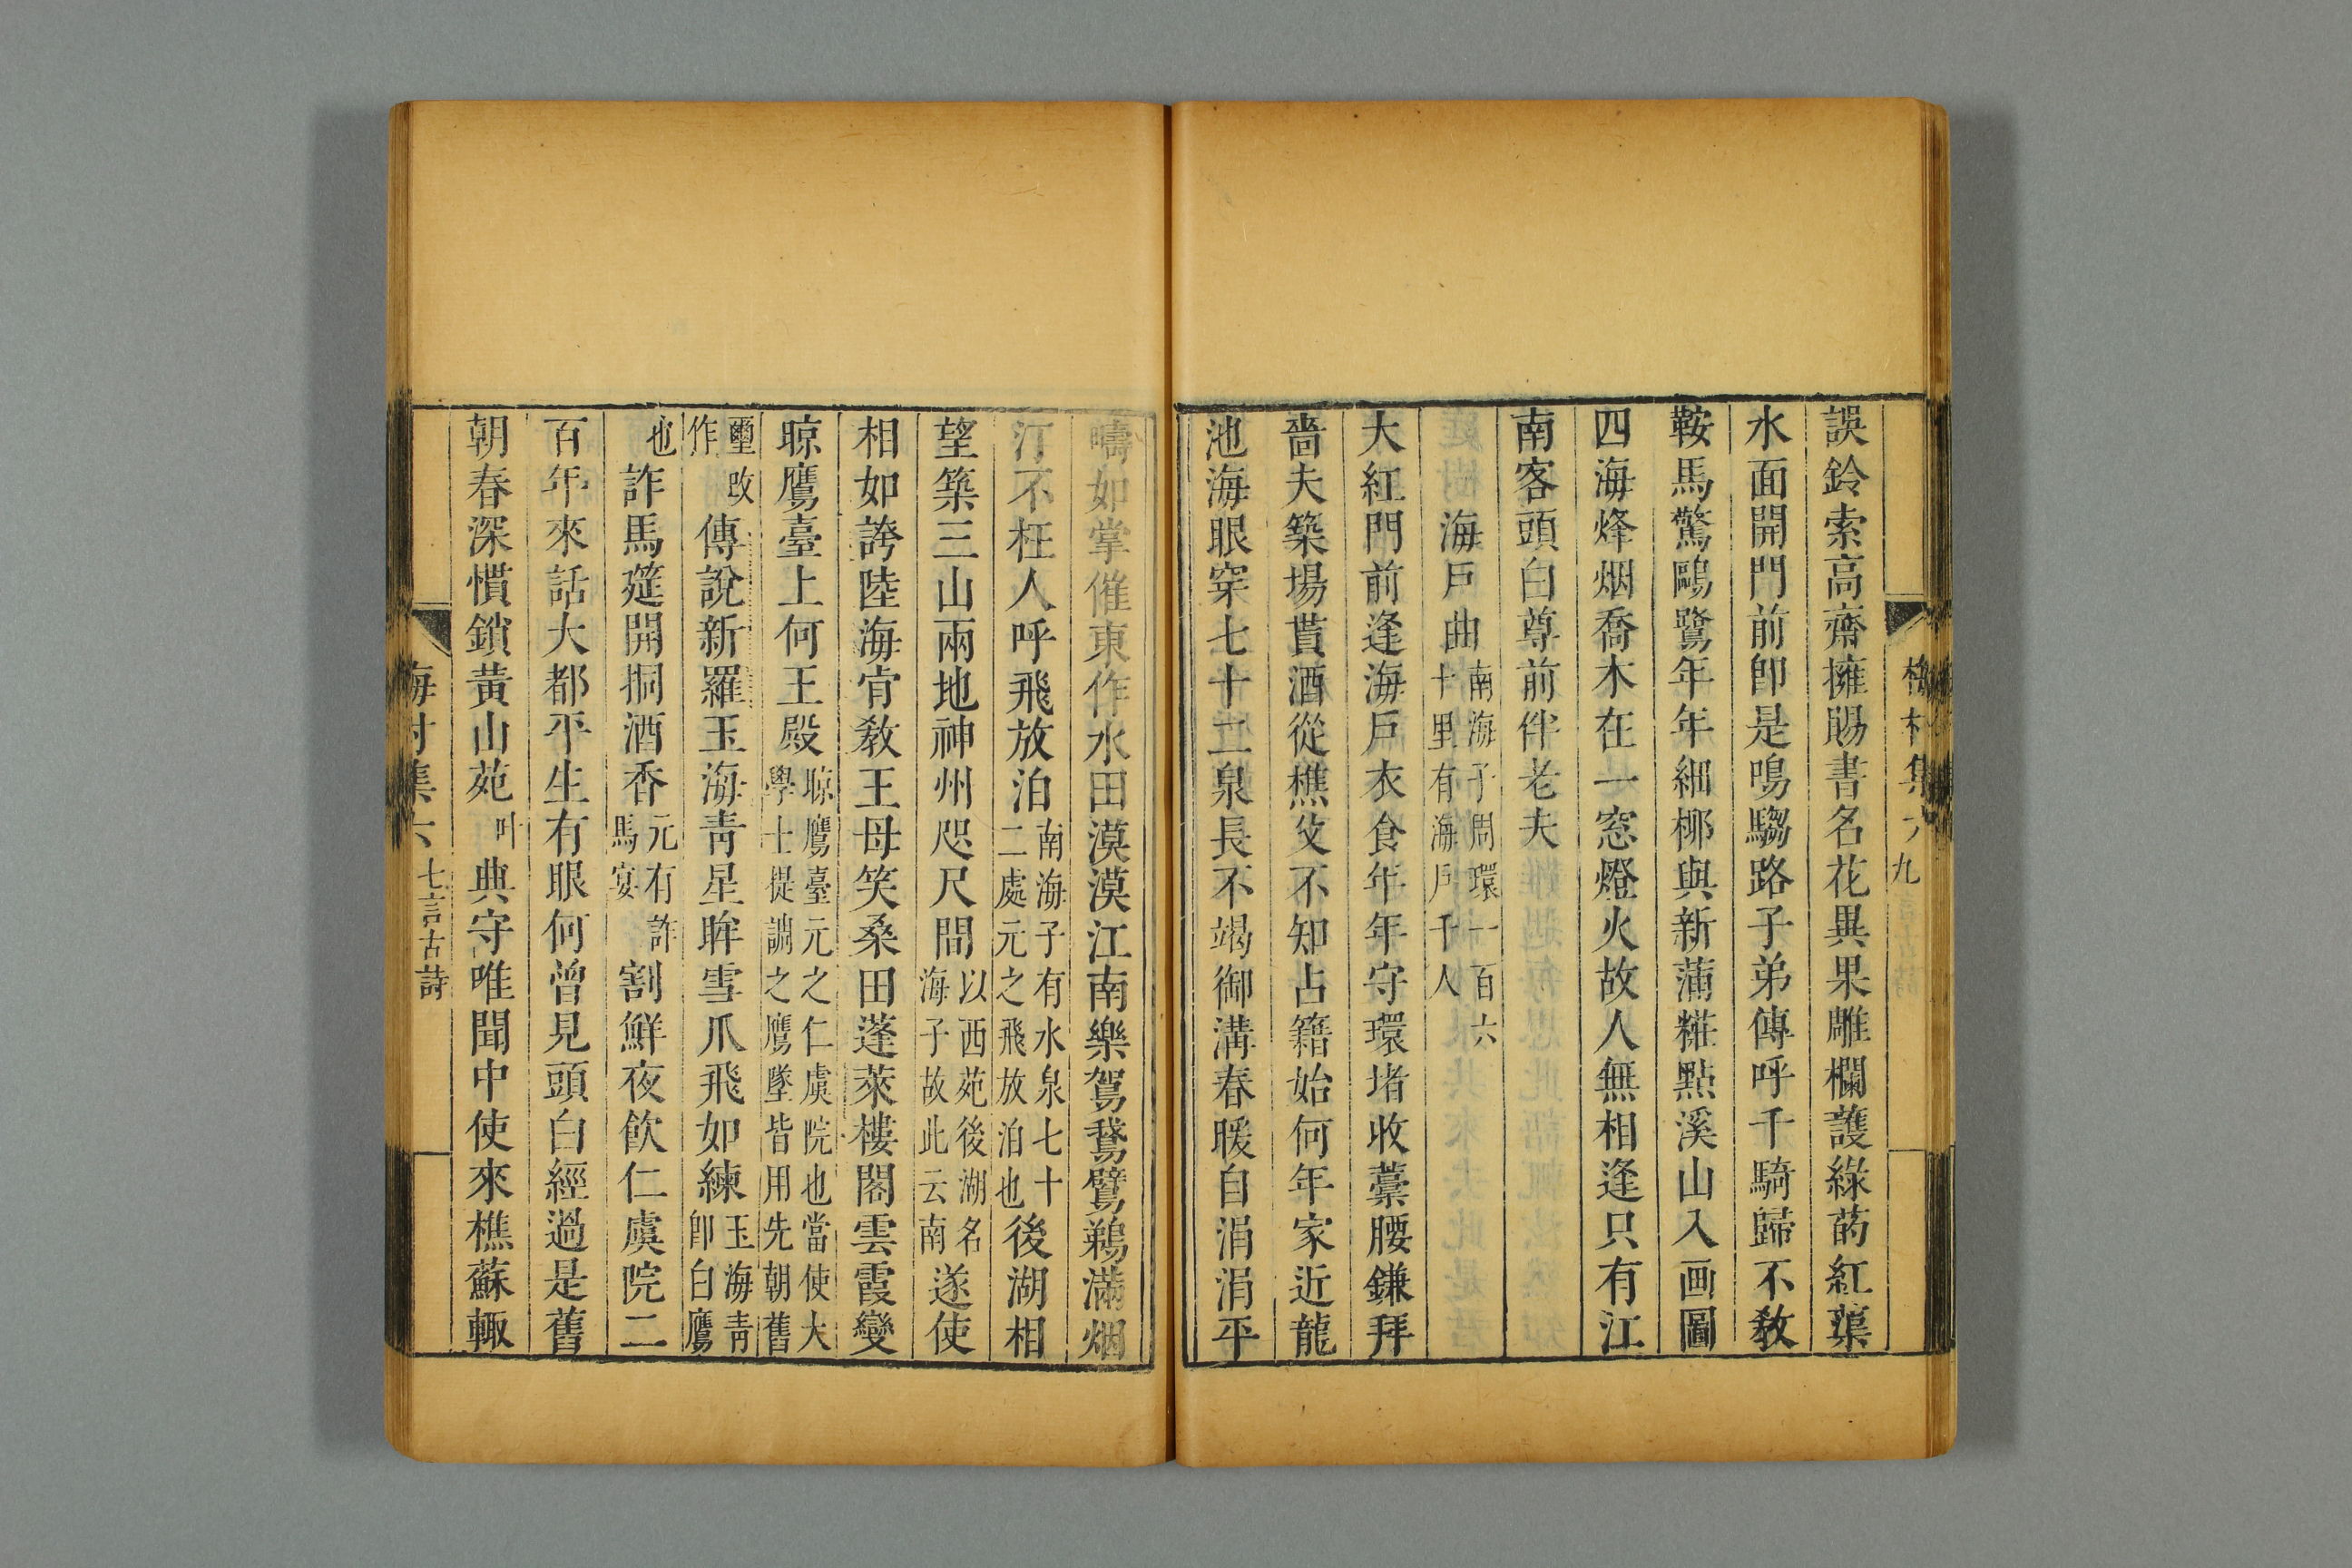 誤鈴索高齋擁賜書名花異果雕欄護綠萼紅蕖
水面開門前卽是鳴騶路子弟傳呼千騎歸不敎
鞍馬驚鷗鷺年年細柳與新蒲糚點溪山入画圖
四海烽烟喬木在一窓燈火故人無相逢只有江
南客頭白尊前伴老夫
海戶曲南海子周環一百六十里有海戶千人
大紅門前逢海戶衣食年年守環堵收藁腰鎌拜
嗇夫築場貰酒從樵父不知占籍始何年家近龍
池海眼穿七十二泉長不竭御溝春暖自涓涓平
疇如掌催東作水田漠漠江南樂駕鵞鸊鵜滿烟
汀不枉人呼飛放泊南海子有水泉七十二處元之飛放泊也後湖相
望築三山兩地神州咫尺間以西苑後湖名海子故此云南遂使
相如誇陸海肯敎王母笑桑田蓬萊樓閣雲霞變
晾鷹臺上何王殿晾鷹臺元之仁虞院也當使大學士提調之鷹墜皆用先朝舊
璽改作傳說新羅玉海靑星眸雪爪飛如練玉海靑卽白鷹
也詐馬筵開挏酒香元有詐馬宴割鮮夜飮仁虞院二
百年來話大都平生有眼何曾見頭白經過是舊
朝春深慣鎖黃山苑叶典守唯聞中使來樵蘇輙
梅村集六
七言古詩
九